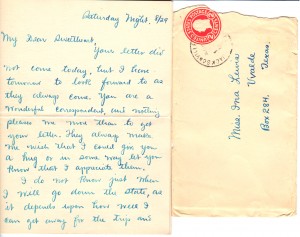 Saturday Night. 8/24
My Dear Sweetheart,
Your letter did
not come today, but I have
to look forward to as
they always come. You are a
wonderful correspondent, and nothing
pleases me more than to get
your letter. They always make
me wish that I could give you
a hug or in some way let you
know that I appreciate them.
I do not know just when
I will go down the state, as
it depends upon how well I
can get away for the trip and
Miss Ina
Uvalde
Texas.
Box 284.